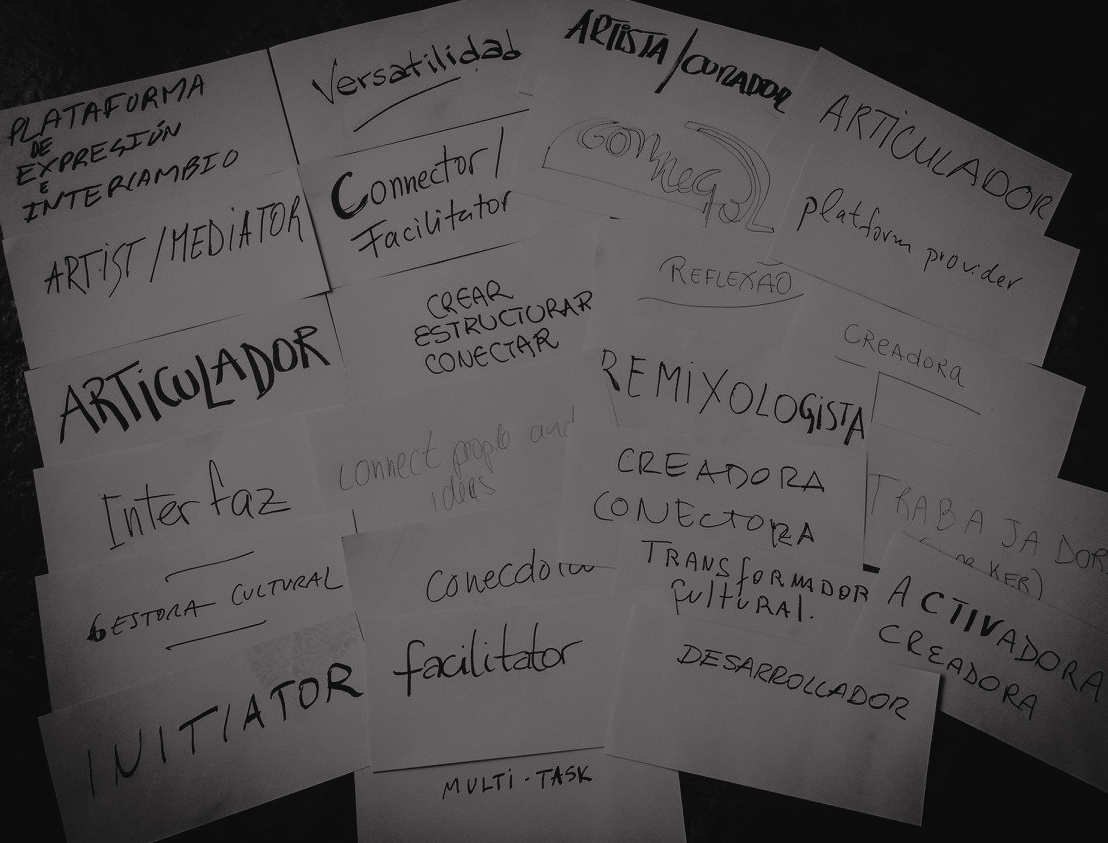 PLATAFORMA
DE
EXPRESIÓN
E
INTERCAMBIO
Versatilidad
ARTISTA/CURADOR
ARTICULADOR
ARTIST/MEDIATOR
Connector/
Facilitator
Connector
platform provider
ARTICULADOR
CREAR
ESTRUCTURAR
CONECTAR
REFLEXÃO
CREADORA
REMIXOLOGISTA
Interfaz
connect people and
ideas
CREADORA
CONECTORA
TRABAJADOR
GESTORA CULTURAL
TRANSFORMADOR
CULTURAL.
ACTIVADORA
CREADORA
INITIATOR
facilitator
DESARROLLADOR
MULTI-TASK